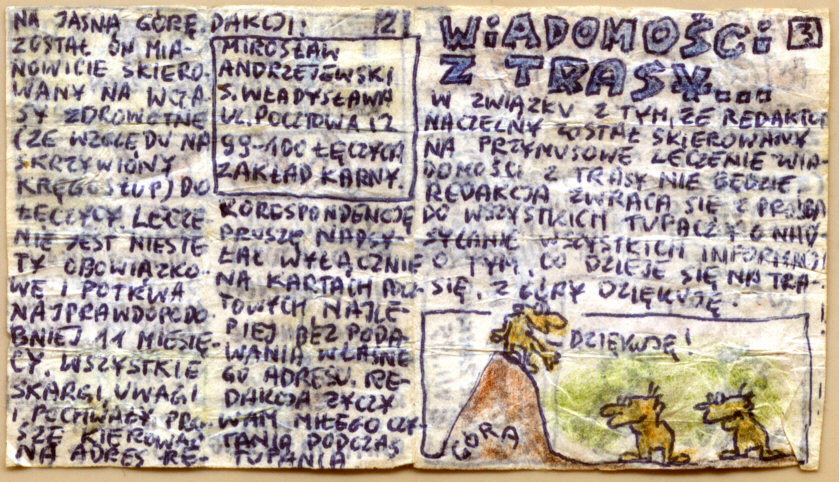 NA JASNĄ GÓRĘ.
ZOSTAŁ ON MIA-
NOWICIE SKIERO-
WANY NA WCZA-
SY ZDROWOTNE
(ZE WZGLĘDU NA
SKRZYWIONY
KRĘGOSŁUP) DO
ŁĘCZYCY. LECZE
NIE JEST NIESTE
TY OBOWIĄZKO-
WE I POTRWA
NAJPRAWDOPODO
BNIEJ 11 MIESIĘ-
CY. WSZYSTKIE
SKARGI, UWAGI
I POCHWAŁY PRO-
SZĘ KIEROWAĆ
NA ADRES RE-
DAKCJI:
2
MIROSŁAW
ANDRZEJEWSKI
S. WŁADYSŁAWA
UL. POCZTOWA 12
99-100 ŁĘCZYCA
ZAKŁAD KARNY.
KORESPONDENCJĘ
PROSZĘ NADSY-
ŁAĆ WYŁĄCZNIE
NA KARTACH POCZ-
TOWYCH NAJLE-
PIEJ BEZ PODA-
WANIA WŁASNE
GO ADRESU. RE-
DAKCJA ŻYCZY
WAM MIŁEGO CZY-
TANIA PODCZAS
TUPANIA
WiADOMOŚCi
3
Z TRASY...
W ZWIĄZKU Z TYM, ŻE REDAKTOR
NACZELNY ZOSTAŁ SKIEROWANY
NA PRZYMUSOWE LECZENIE WIA-
DOMOŚCI Z TRASY NIE BĘDZIE.
REDAKCJA ZWRACA SIĘ Z PROŚBĄ
DO WSZYSTKICH TUPACZY O NAD-
SYŁANIE WSZYSTKICH INFORMACJI
O TYM, CO DZIEJE SIĘ NA TRA-
SIE. Z GÓRY DZIĘKUJĘ.
DZIĘKUJĘ!
GÓRA